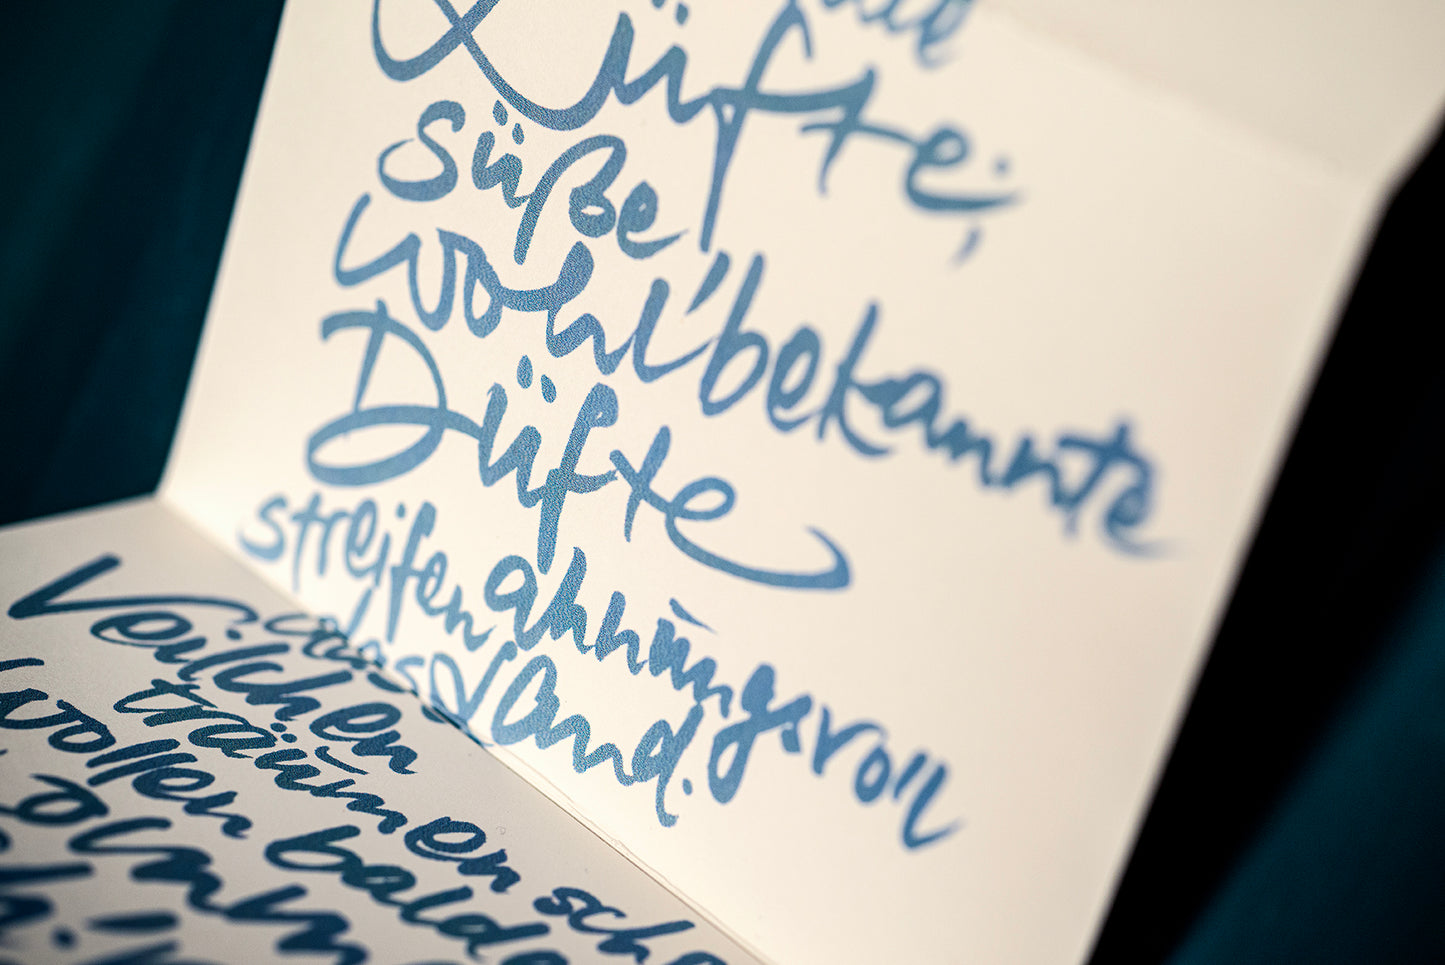 Lüfte;
süße
wohlbekannte
Düfte
streifen ahnungsvoll
das Land.
Veilchen
träumen scho
wollen balde